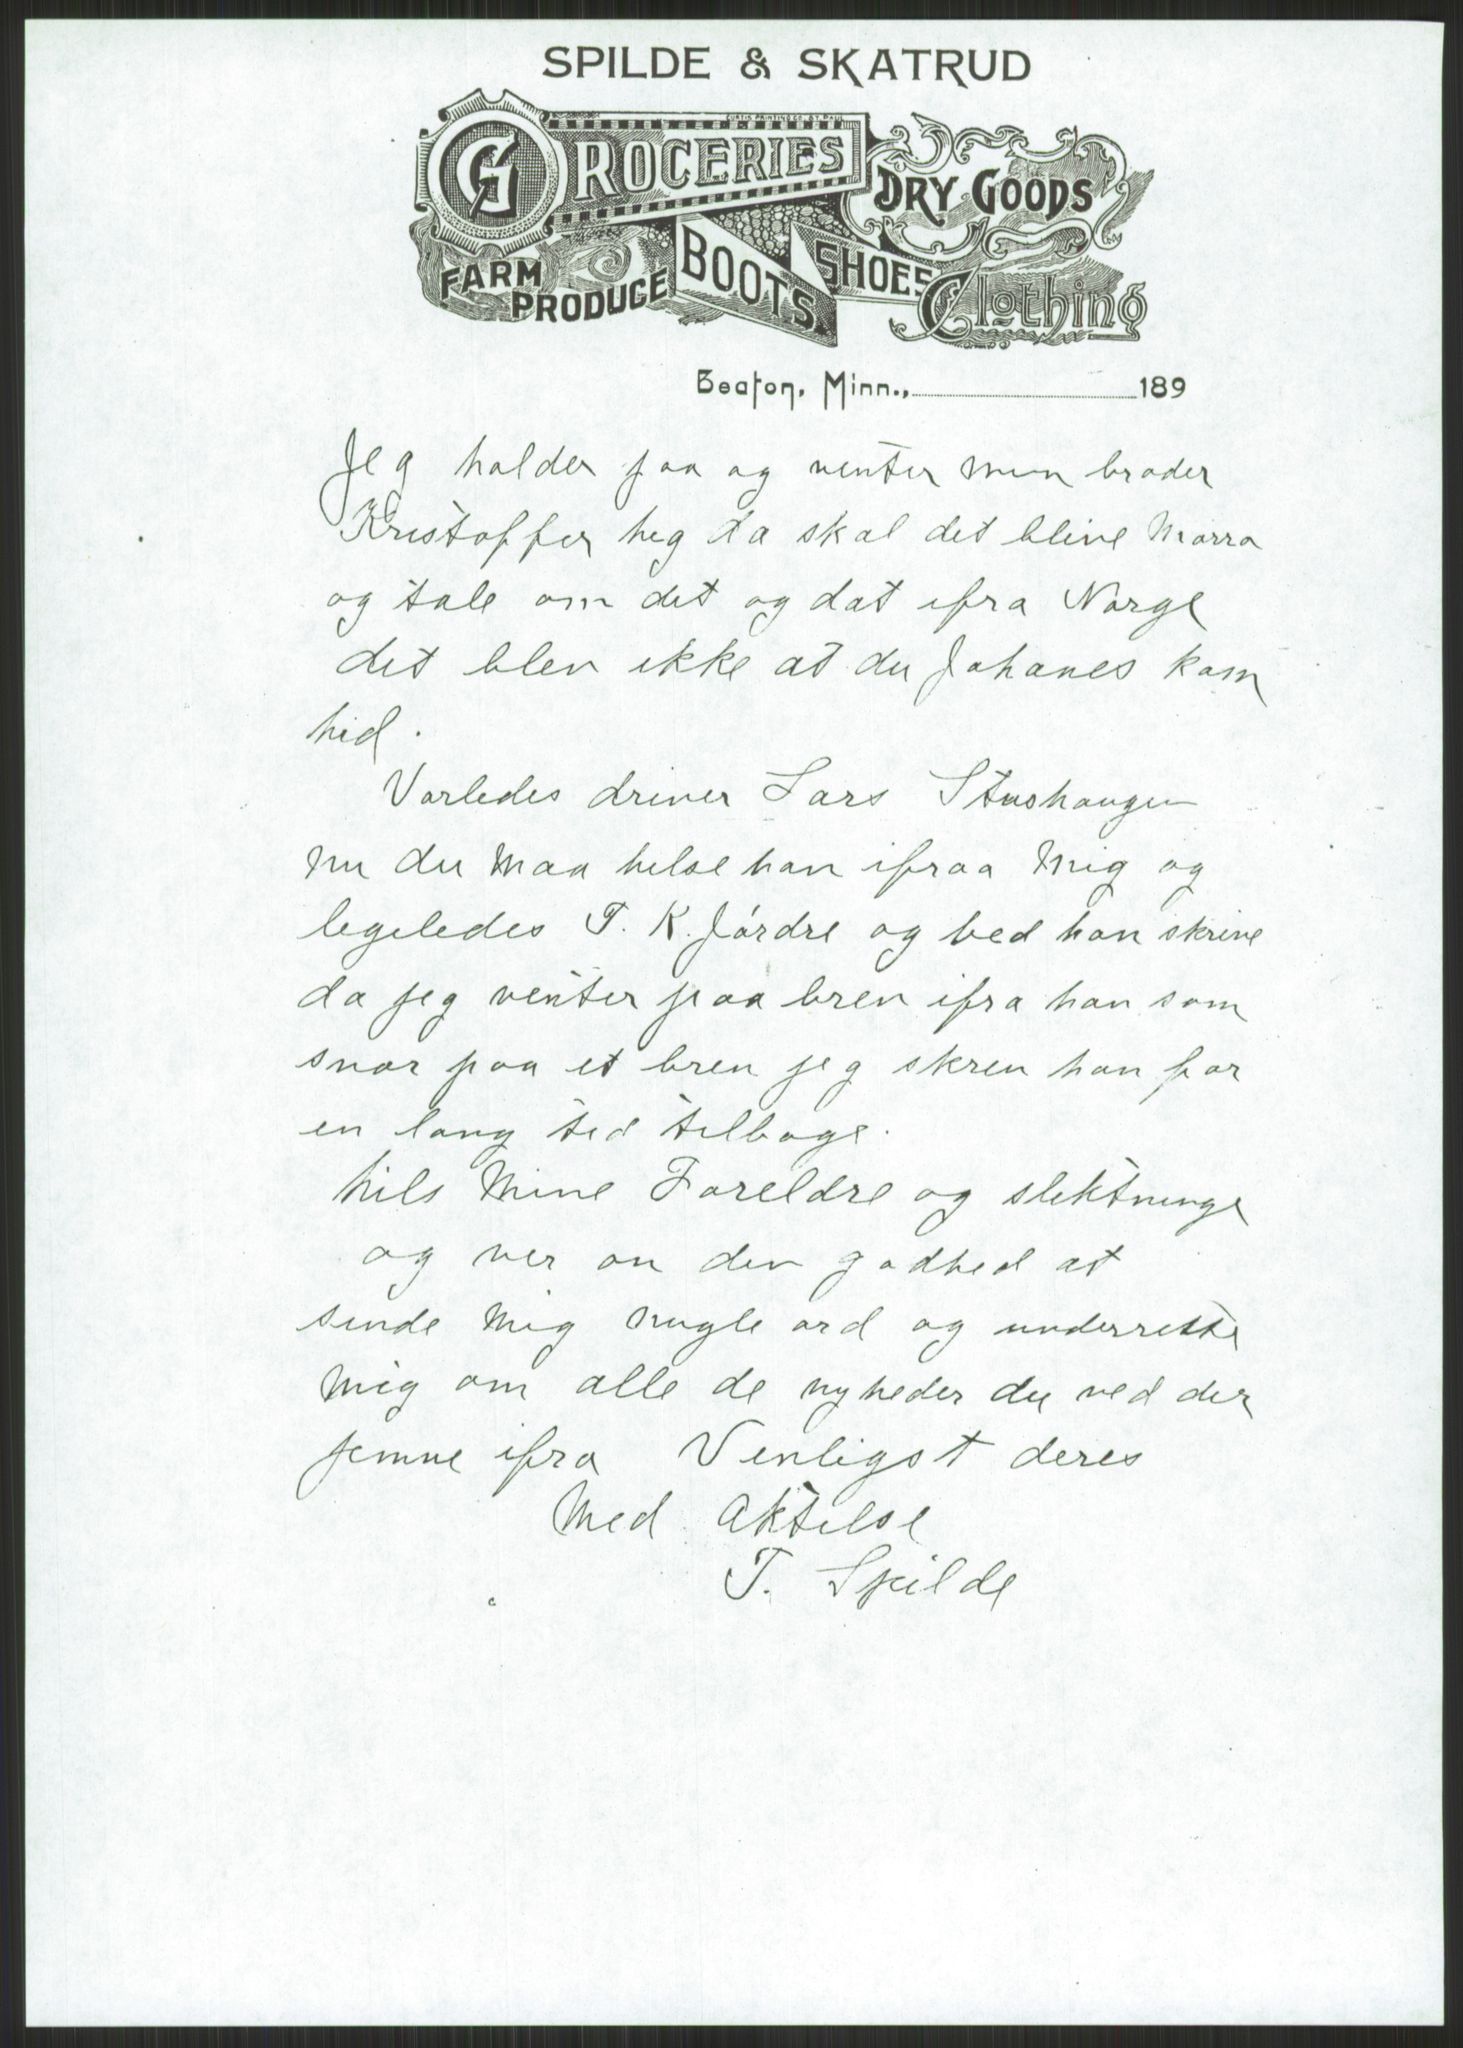 SPILDE & SKATRUD
CURTIS PRINTING CO. ST. PAUL
GROCERIES
DRY GOODS
FARM PRODUCE
BOOTS
SHOES
Clothing
Beaton, Minn., 189
Jeg holder paa og venter min broder
Kristoffer heg da skal det blive Morra
og tale om det og dat ifra Norge
det blev ikke at du Johanes kom
hid.
Vorledes driver Lars Stushaugen
nu du Maa helse han ifraa Mig og
legeledes T. K. Jórdre og bed han skrive
da jeg venter paa brev ifra han som
svar paa et brev jeg skrev han for
en lang tid tilbage.
hils Mine Foreldre og slektninge
og ver on den godhed at
sende Mig nogle ord og underrette
Mig om alle de nyheder du ved der
jemme ifra Venligst deres
Med Aktelse
T. Spilde